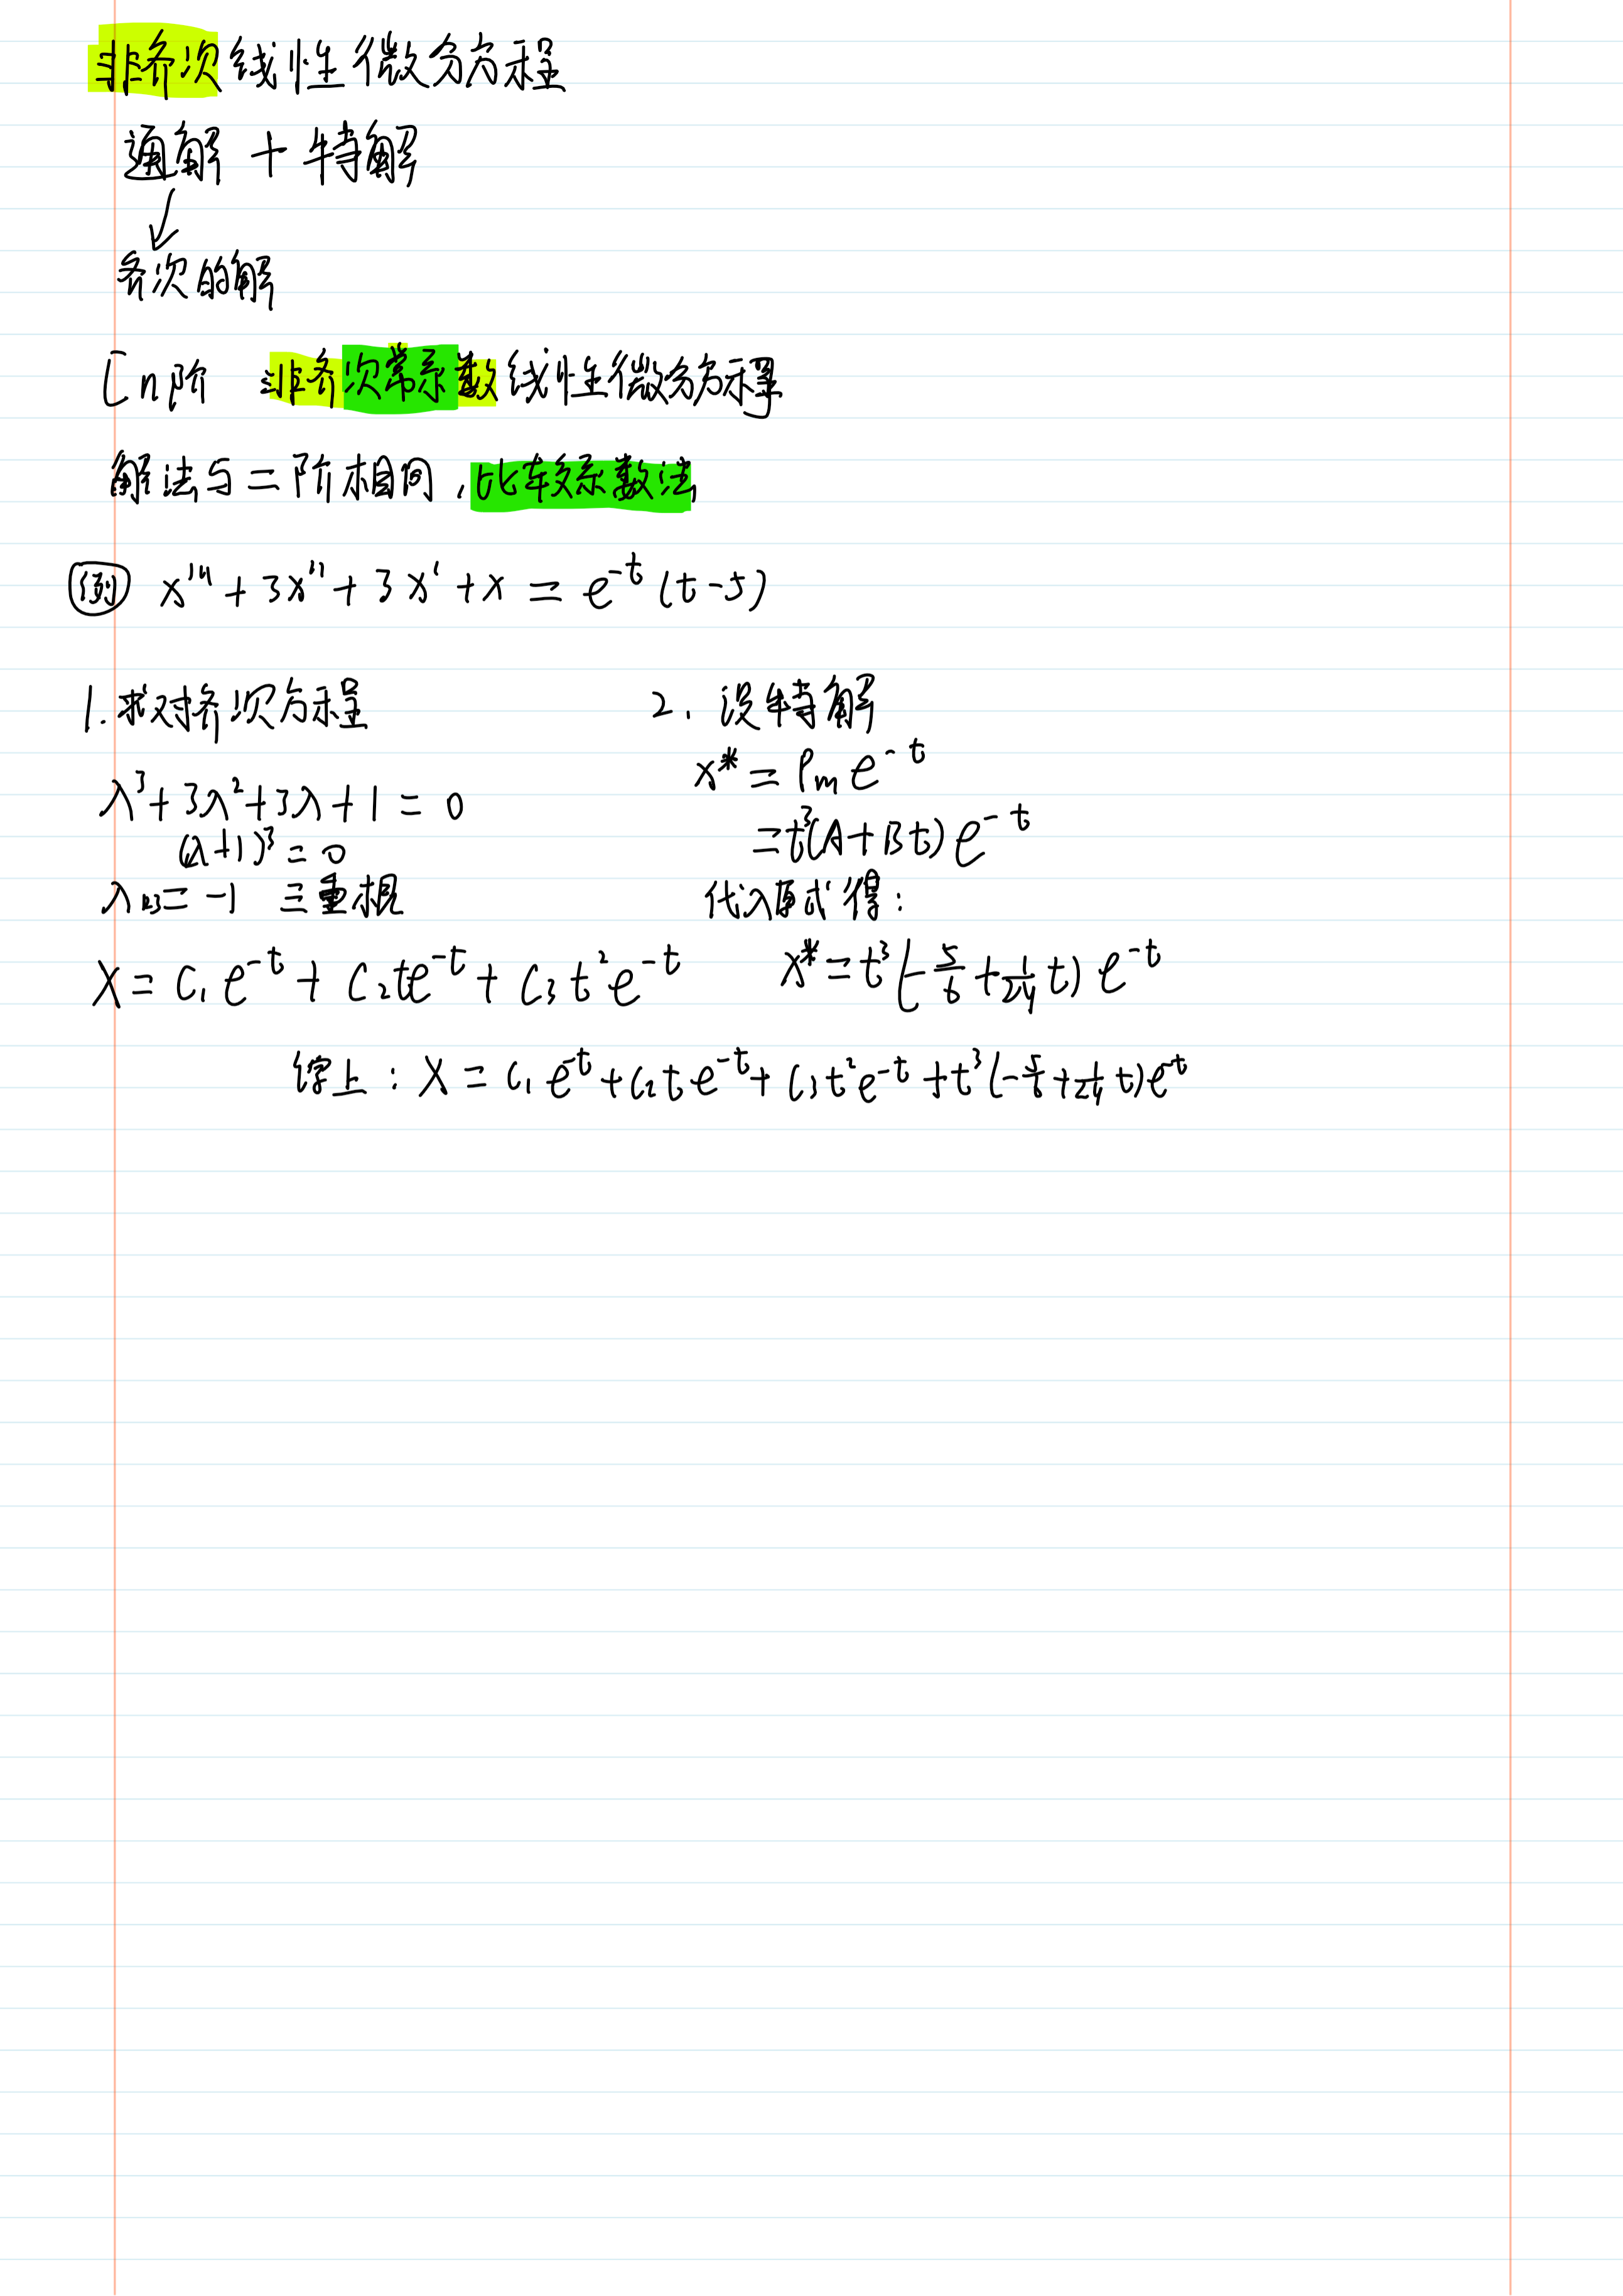 非齐次线性微分方程
通解 + 特解
齐次的解
[n阶 非齐次常系数线性微分方程
解法与二阶相同，比较系数法
例 x''' + 3x'' + 3x' + x = e^{-t} (t-5)
1. 求对齐次方程
λ³ + 3λ² + 3λ + 1 = 0
(λ+1)³ = 0
λ₁₂₃ = -1 三重根
X = C₁e^{-t} + C₂te^{-t} + C₃t²e^{-t}
2. 设特解
x* = Pₘ e^{-t}
= t³(A+Bt) e^{-t}
代入原式得：
x* = t³(-5/6 + 1/24 t) e^{-t}
综上：X = C₁e^{-t} + C₂te^{-t} + C₃t²e^{-t} + t³(-5/6 + 1/24 t)e^{-t}